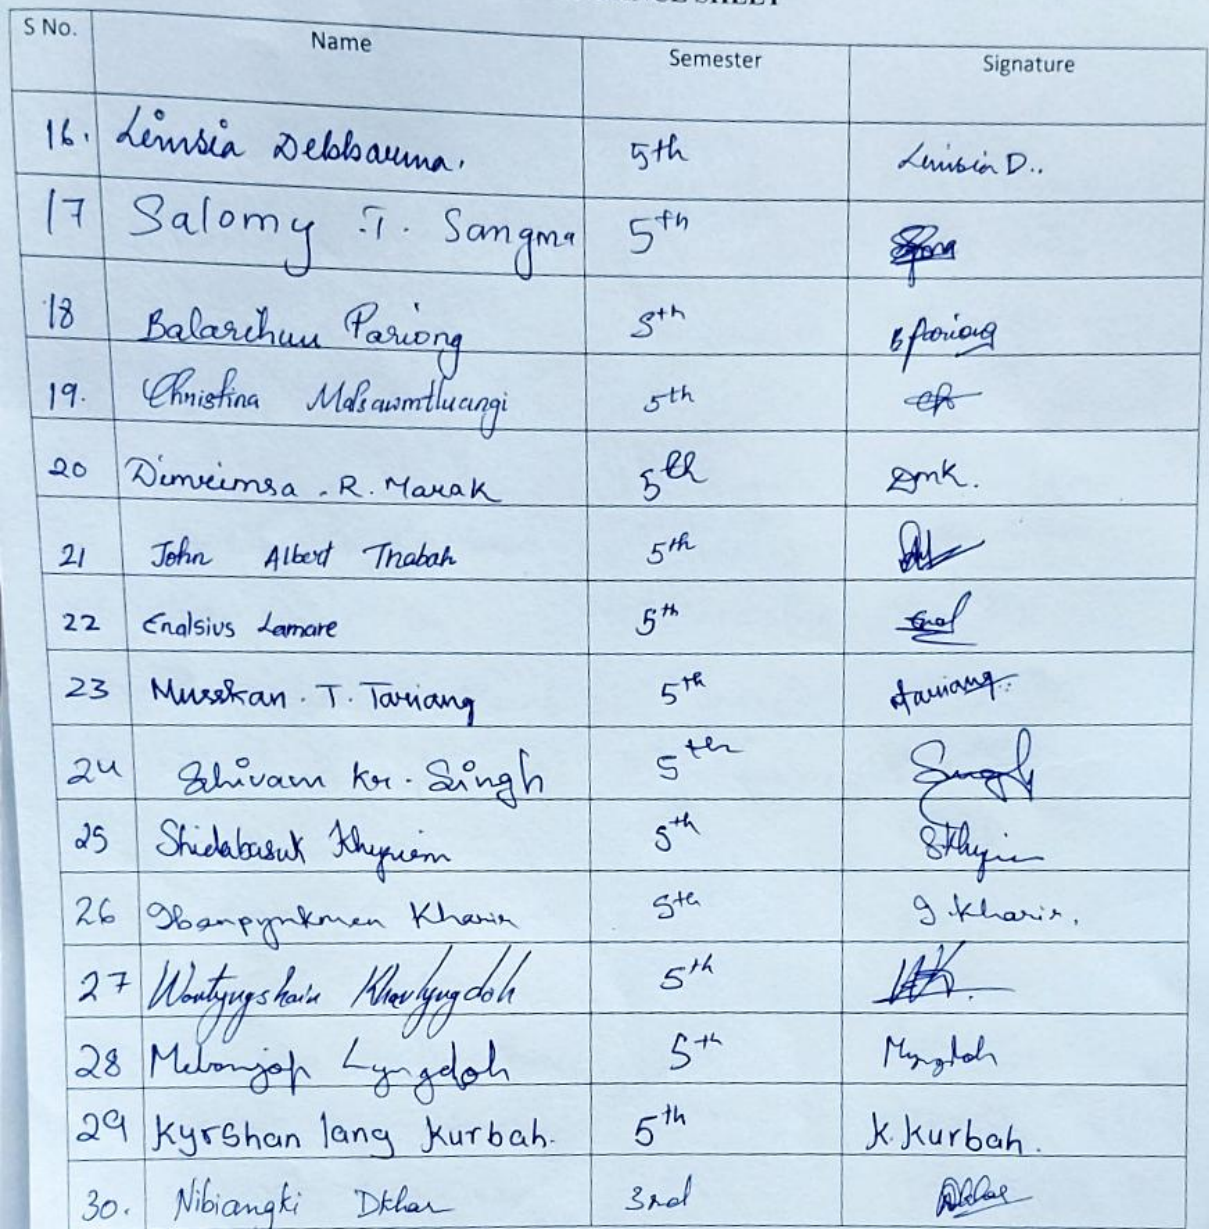 SHEET
S No. Name Semester Signature
16. Limsia Debbarma. 5th Limsia D..
17 Salomy .T. Sangma 5th
18 Balarihun Pariong 5th B Pariong
19. Christina Malsawmtluangi 5th
20 Dimreimsa . R. Marak 5th Dmk.
21 John Albert Thabah 5th
22 Enalsius Lamare 5th Enal
23 Musskan . T. Tariang 5th Tariang.
24 Shivam Kr. Singh 5th Singh
25 Shidabasuk Khyriem 5th
26 Ibanpynkmen Kharir 5th I. Kharir.
27 Kharlyngdoh 5th
28 Lyngdoh 5th
29 Kyrshan lang Kurbah. 5th K. Kurbah.
30. Nibiangki Dkhar 3rd Dkhar